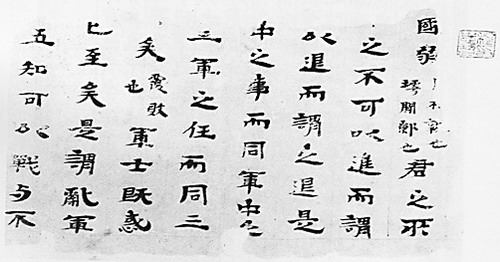 國弱君之所
之不可以進而謂
以退而謂之退是
中之事而同軍中之
三軍之任而同三
矣覆敗也軍士既惑
至矣是謂亂軍
五知可以戰与不